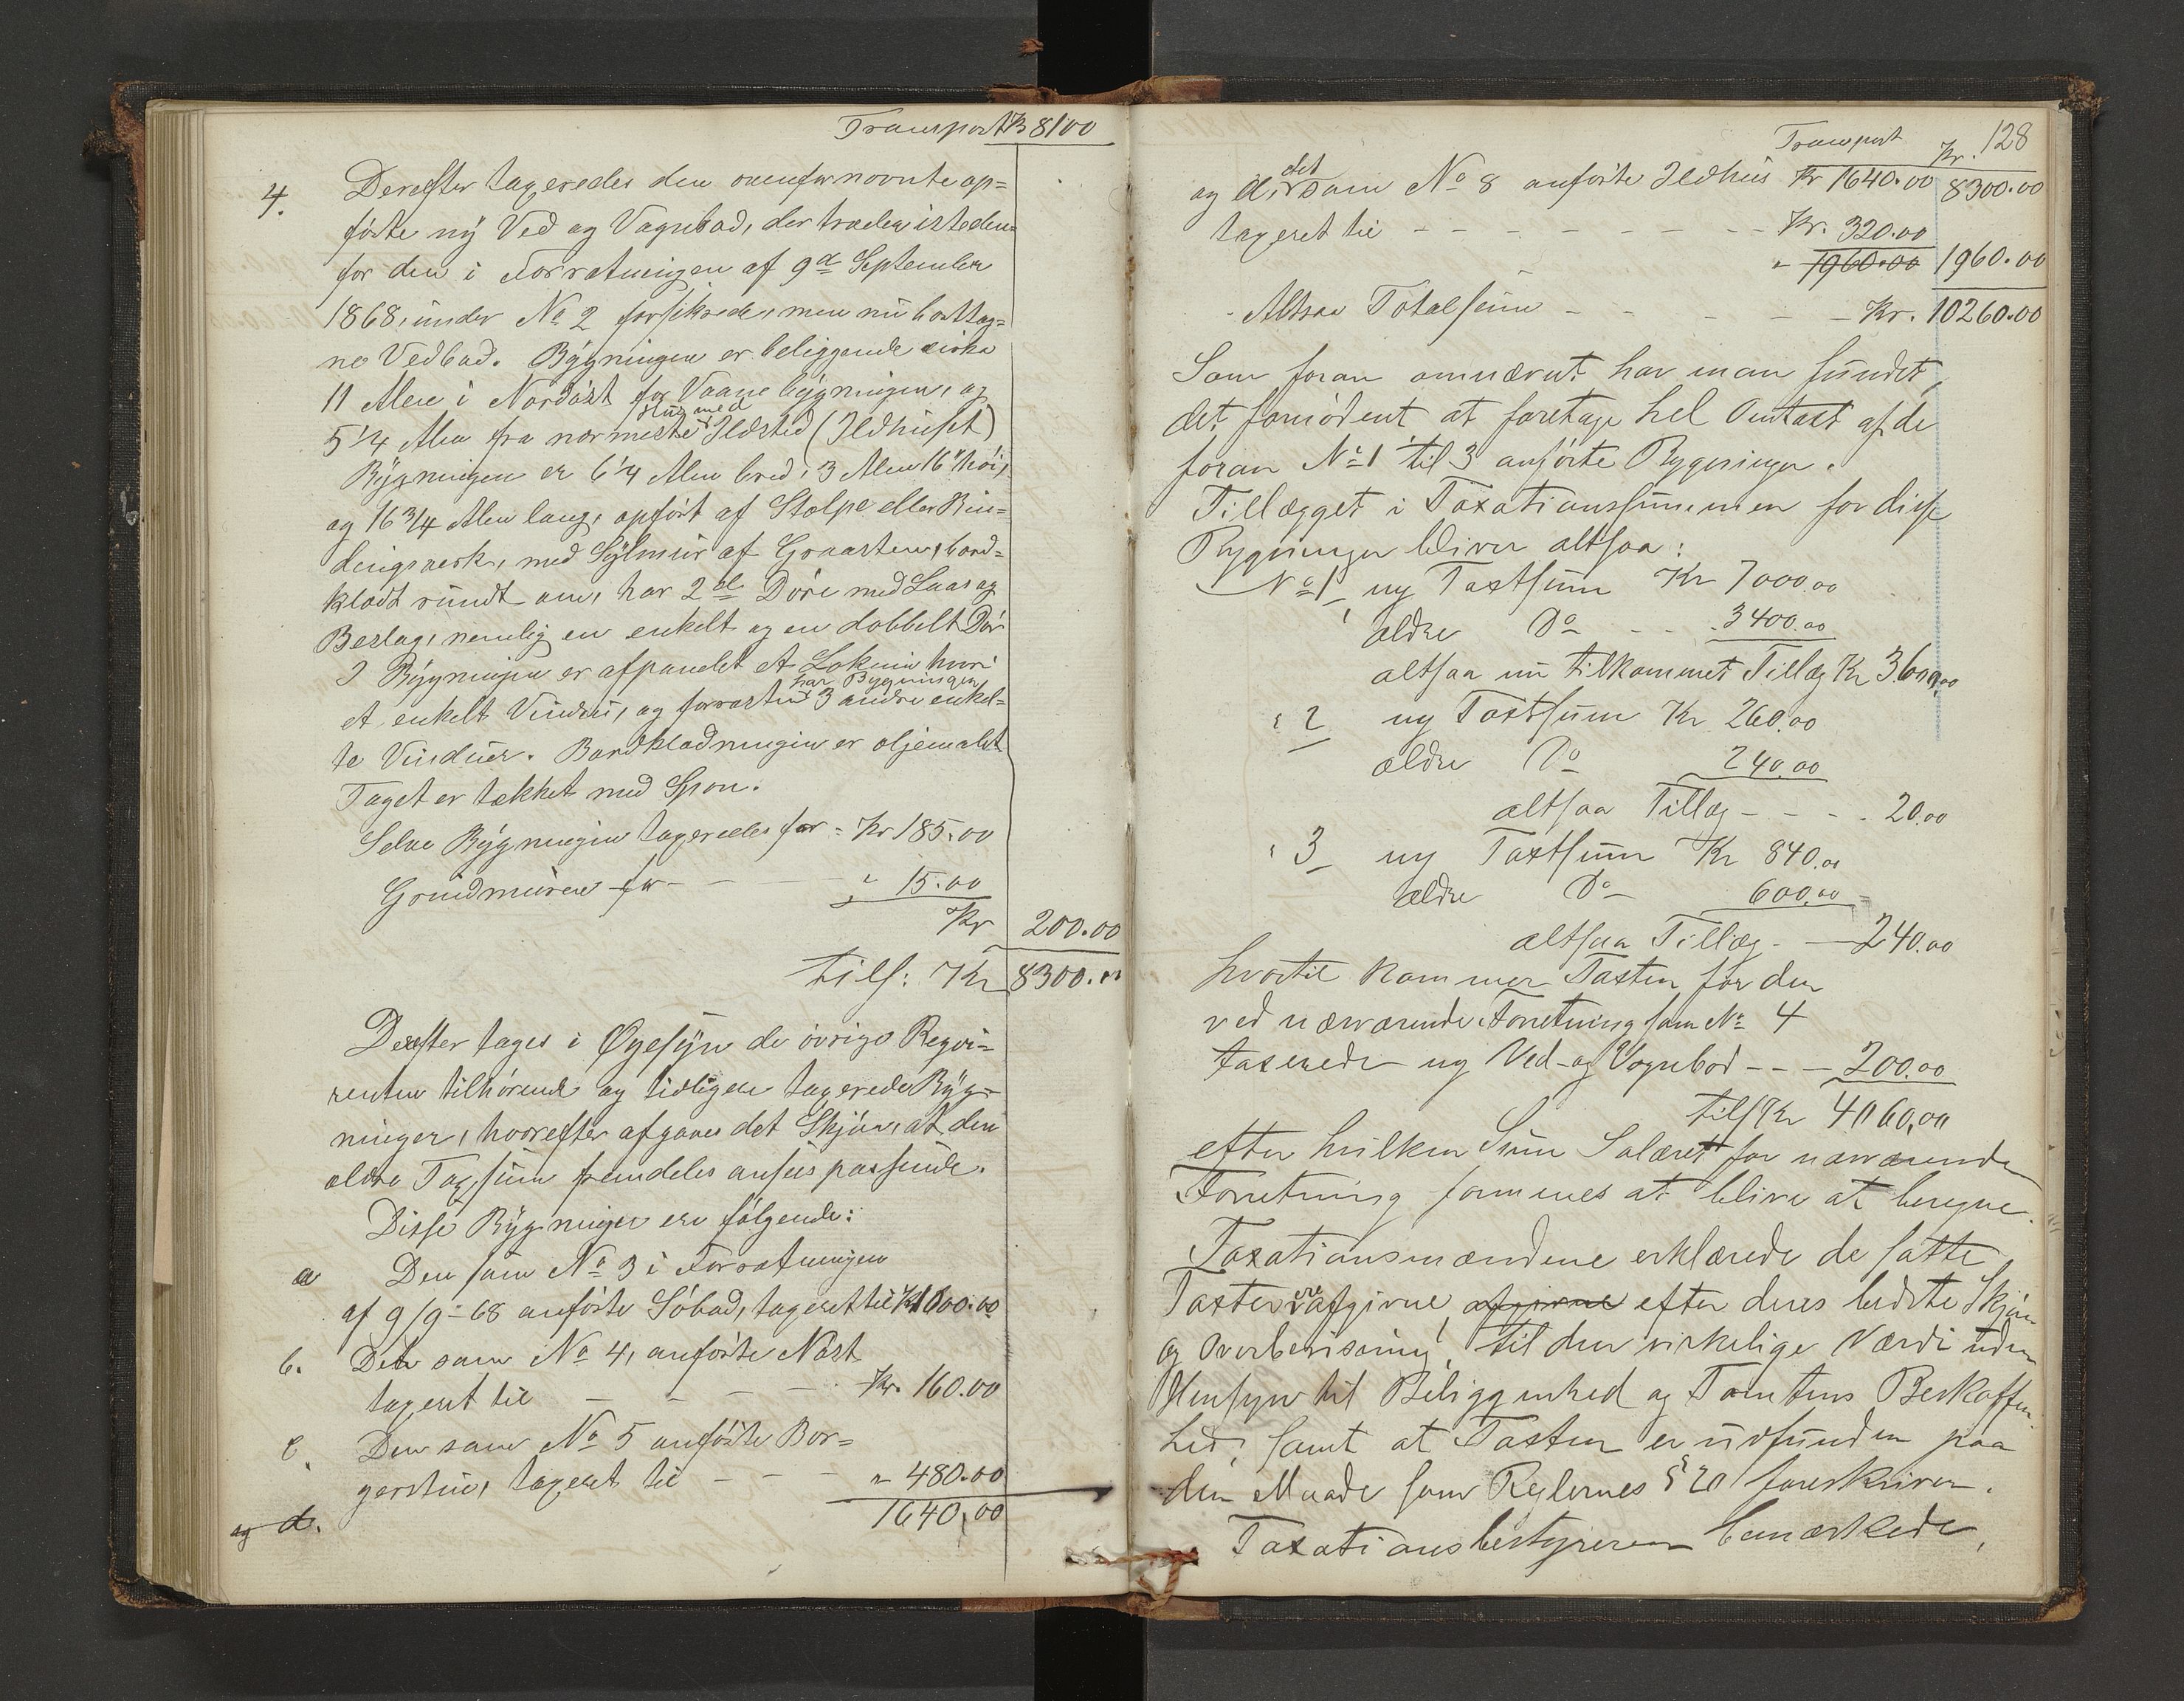 Transport Kr 8100
4. Derefter taxeredes den ovenfor nævnte op=
førte ny Ved og Vognbod, der træder isteden=
for den i Forretningen af 9de September
1868, under No 2 forsikrede, men nu borttag=
ne Vedbod. Bygningen er beliggende cirka
11 Alen i Nordøst for Vaanebygningen, og
5 1/4 Alen fra nærmeste Hus med Ildsted (Ildhuset)
Bygningen er 6 1/4 Alen bred, 3 Alen 16" høi,
og 16 3/4 Alen lang, opført af Stolpe eller Bin=
dingsverk, med Sylmur af Graasten, bord=
klædt rundt om, har 2de Døre med Laas og
Beslag, nemlig en enkelt og en dobbelt Dør
I Bygningen er afpanelet et Lokum hvori
et enkelt Vindu, og forresten har Bygningen 3 andre enkel=
te Vinduer. Bordklædningen er oljemalet
Taget er tækket med Spon.
Selve Bygningen taxeredes for = Kr 185.00
Grundmuren for - - - " 15.00
Kr 200.00
tils: Kr 8300.00
Derefter tages i Øyesyn de øvrige Rekvi=
renten tilhørende og tidligere taxerede Byg=
ninger, hvorefter afgaves det Skjøn, at den
ældre Taxsum fremdeles ansees passende.
Disse Bygninger ere følgende:
a Den som No 3 i Forretningen
af 9/9-68 anførte Søbod, taxeret til Kr 1000.00
b. Det som No 4, anførte Nøst
taxeret til - - - - Kr. 160.00
c. Den som No 5 anførte Bor=
gerstue, taxeret til - - - " 480.00
1640,00
og d.
128
Transport Kr.
og d, det som No 8 anførte Ildhus Kr 1640.00 8300.00
taxeret til - - - - - - - - Kr. 320.00
" 1960.00 1960.00
Altsaa Totalsum - - - - - Kr. 10260.00
Som foran omnævnt har man fundet
det fornødent at foretage hel Omtaxt af de
foran No 1 til 3 anførte Bygninger.
Tillægget i Taxationssummen for disse
Bygninger bliver altsaa:
No 1 ny Taxtsum Kr 7000.00
ældre Do - - - 3400.00
altsaa nu tilkommet Tillæg Kr 3600,00
" 2 ny Taxtsum Kr 260.00
ældre Do 240.00
altsaa Tillæg - - - - 20.00
" 3 ny Taxtsum Kr 840.00
ældre Do 600.00
altsaa Tillæg - - 240.00
hvortil kommer Taxten for den
ved nærværende Forretning som No 4
taxerede ny Ved- og Vognbod - - - 200.00
tils Kr 4060,00
efter hvilken Sum Salæret for nærværende
Forretning formenes at blive at beregne.
Taxationsmændene erklærede de satte
Taxter ere afgivne afgivne efter deres bedste Skjøn
og Overbevisning, til den virkelige Værdi uden
Hensyn til Beliggenhed og Tomtens Beskaffen=
hed, samt at Taxten er udfunden paa
den Maade som Reglernes § 20 foreskriver.
Taxationsbestyreren bemærkede,